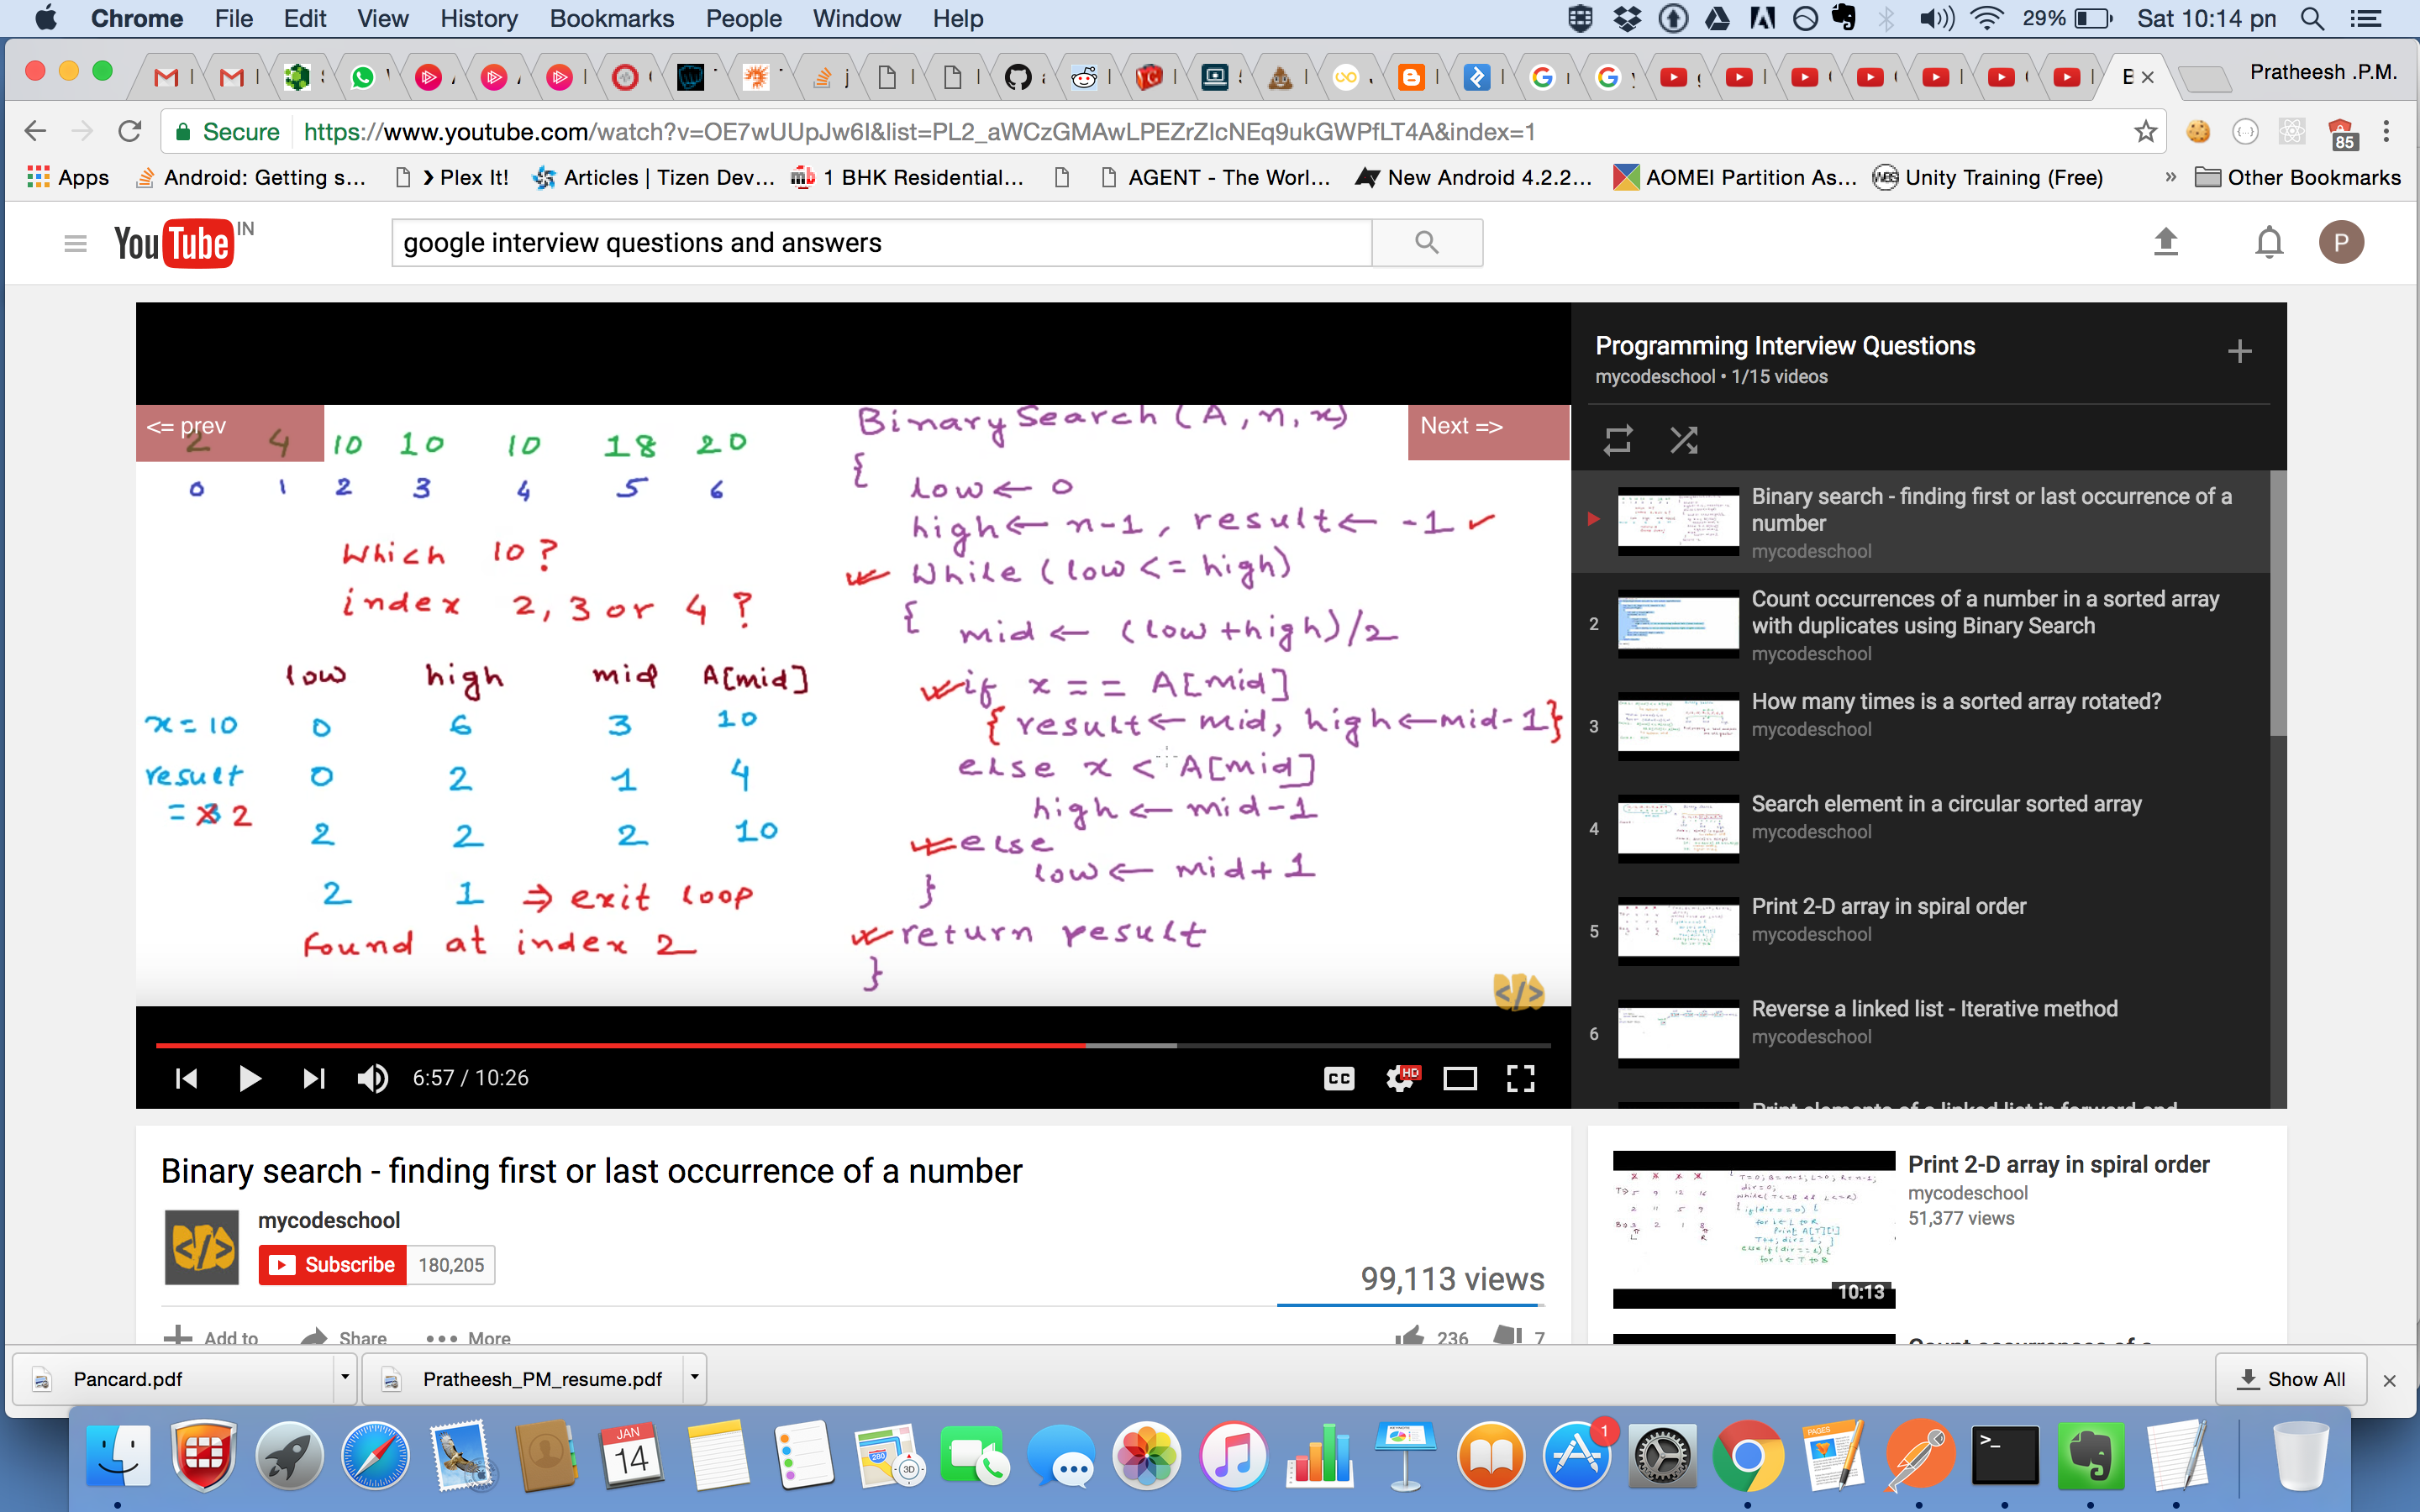 Chrome File Edit View History Bookmarks People Window Help 29% Sat 10:14 pn
B Pratheesh .P.M.
Secure https://www.youtube.com/watch?v=OE7wUUpJw6I&list=PL2_aWCzGMAwLPEZrZIcNEq9ukGWPfLT4A&index=1 85
Apps Android: Getting s... Plex It! Articles | Tizen Dev... 1 BHK Residential... AGENT - The Worl... New Android 4.2.2... AOMEI Partition As... Unity Training (Free) » Other Bookmarks
YouTube IN
google interview questions and answers
P
<= prev
Next =>
2 4 10 10 10 18 20
0 1 2 3 4 5 6
Which 10 ?
index 2, 3 or 4 ?
low high mid A[mid]
x = 10 0 6 3 10
result 0 2 1 4
= 3 2
2 2 2 10
2 1 ⇒ exit loop
Found at index 2
Binary Search (A, n, x)
{
low ← 0
high ← n-1, result ← -1
While (low <= high)
{
mid ← (low+high)/2
if x == A[mid]
{ result ← mid, high ← mid-1}
else x < A[mid]
high ← mid-1
else
low ← mid+1
}
return result
}
</>
6:57 / 10:26
CC HD
Programming Interview Questions
mycodeschool • 1/15 videos
Binary search - finding first or last occurrence of a
number
mycodeschool
2
Count occurrences of a number in a sorted array
with duplicates using Binary Search
mycodeschool
3
How many times is a sorted array rotated?
mycodeschool
4
Search element in a circular sorted array
mycodeschool
5
Print 2-D array in spiral order
mycodeschool
6
Reverse a linked list - Iterative method
mycodeschool
Print elements of a linked list in forward and
Binary search - finding first or last occurrence of a number
mycodeschool
Subscribe 180,205
99,113 views
Add to Share More
236 7
Print 2-D array in spiral order
mycodeschool
51,377 views
10:13
Count occurrences of a
Pancard.pdf
Pratheesh_PM_resume.pdf
Show All
JAN
14
3D
1
PAGES
>_